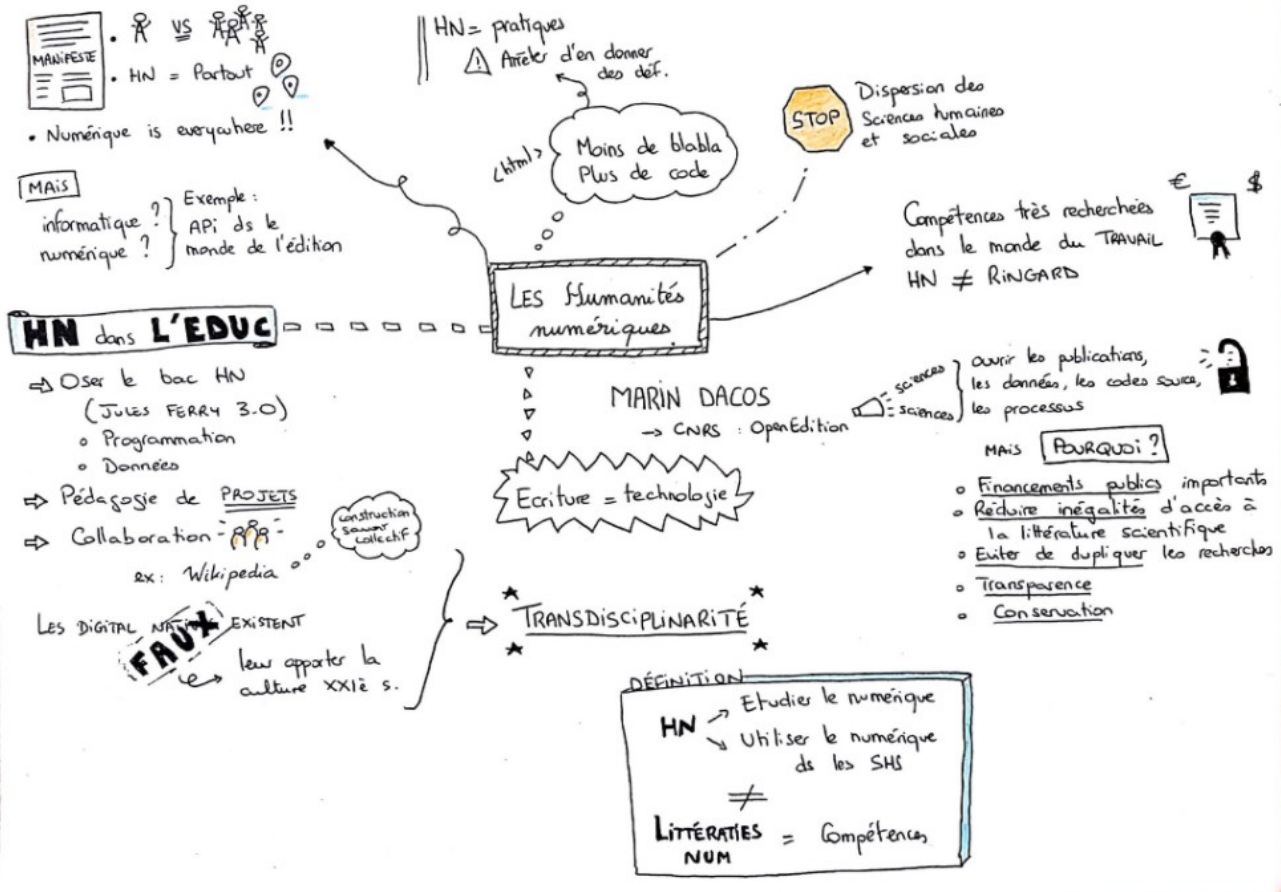 MANIFESTE
• VS
• HN = Partout
• Numérique is everywhere !!
MAIS
informatique ?
numérique ?
Exemple :
API ds le
monde de l'édition
HN = pratiques
Arrêter d'en donner
des déf.
<html>
Moins de blabla
Plus de code
STOP
Dispersion des
Sciences humaines
et sociales
€ $
Compétences très recherchées
dans le monde du TRAVAIL
HN ≠ RINGARD
LES Humanités
numériques
HN dans L'EDUC
⇒ Oser le bac HN
(JULES FERRY 3.0)
o Programmation
o Données
⇒ Pédagogie de PROJETS
⇒ Collaboration
ex: Wikipedia
construction
savoir
collectif
LES DIGITAL NATIVES EXISTENT
FAUX
leur apporter la
culture XXIè s.
MARIN DACOS
→ CNRS : OpenEdition
sciences
sciences
ouvrir les publications,
les données, les codes source,
les processus
MAIS POURQUOI ?
o Financements publics importants
o Réduire inégalités d'accès à
la littérature scientifique
o Eviter de dupliquer les recherches
o Transparence
o Conservation
Ecriture = technologie
⇒ TRANSDISCIPLINARITÉ
DÉFINITION
HN
Etudier le numérique
Utiliser le numérique
ds les SHS
≠
LITTÉRATIES = Compétences
NUM